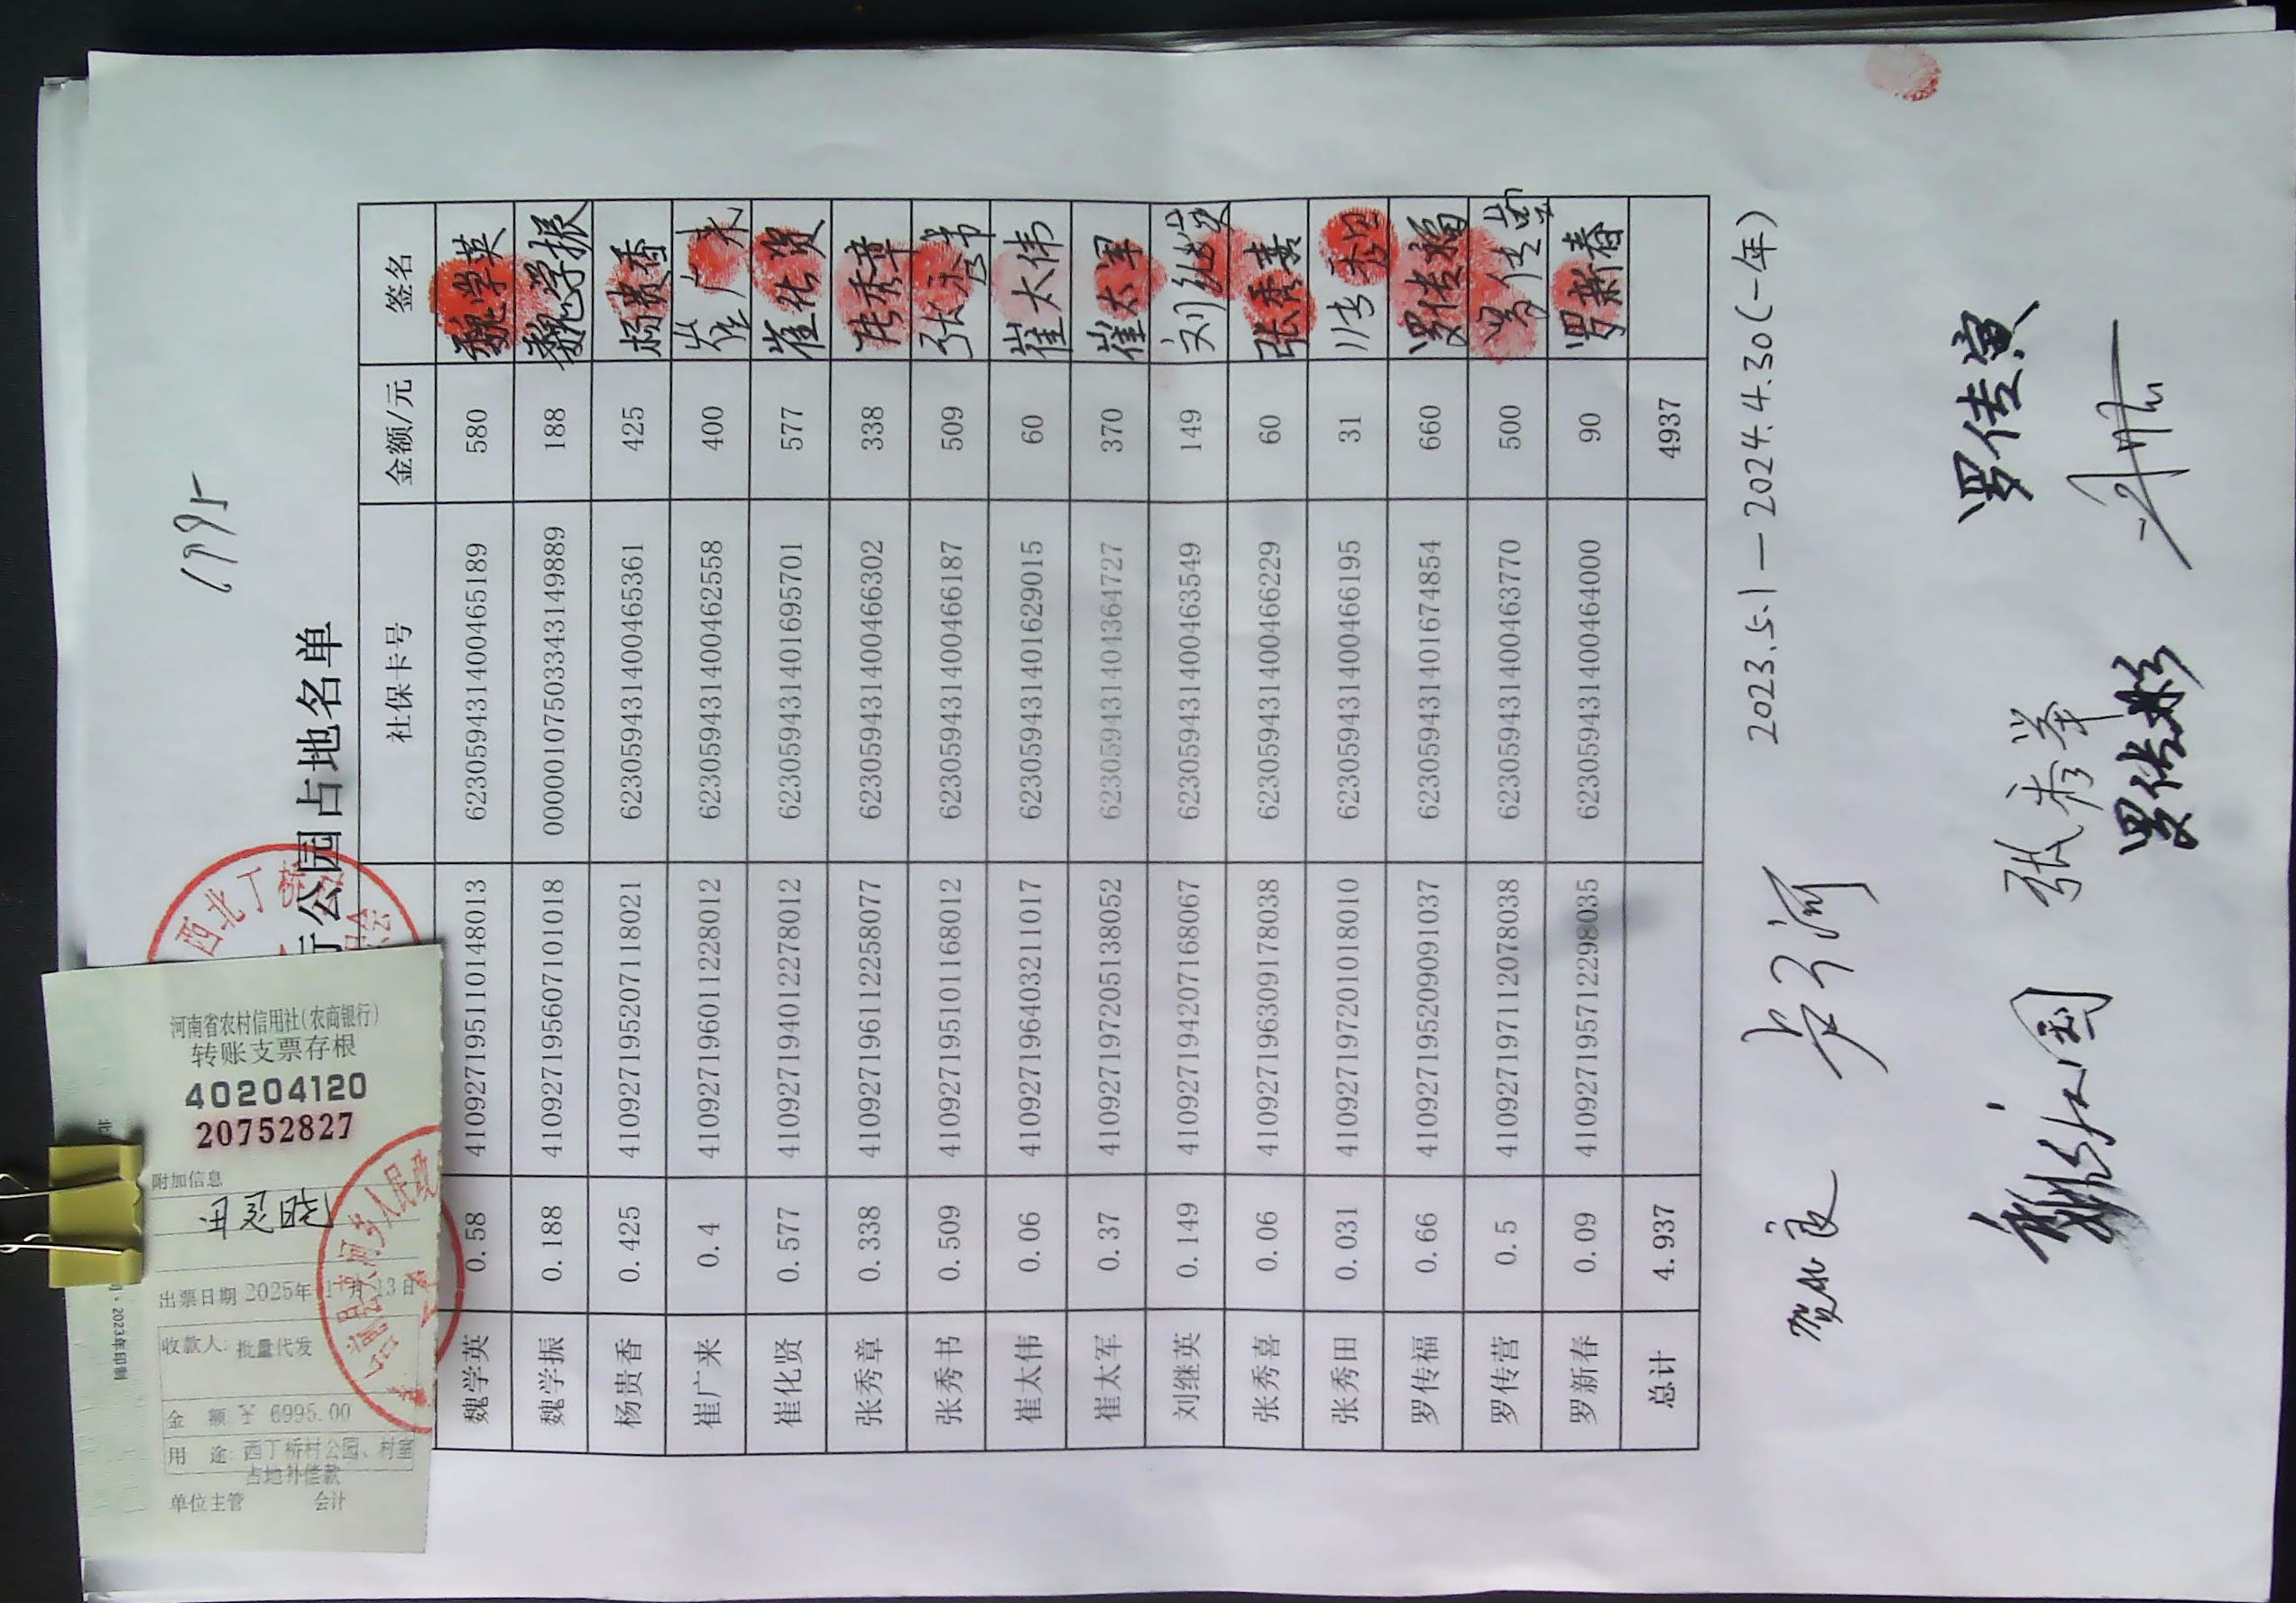 6995
公园占地名单
社保卡号 金额/元 签名
魏学英 0.58 410927195110148013 623059431400465189 580 魏学英
魏学振 0.188 410927195607101018 00000107503343149889 188 魏学振
杨贵香 0.425 410927195207118021 623059431400465361 425 杨贵香
崔广来 0.4 410927196011228012 623059431400462558 400 崔广来
崔化贤 0.577 410927194012278012 623059431401695701 577 崔化贤
张秀章 0.338 410927196112258077 623059431400466302 338 张秀章
张秀书 0.509 410927195101168012 623059431400466187 509 张秀书
崔太伟 0.06 410927196403211017 623059431401629015 60 崔太伟
崔太军 0.37 410927197205138052 623059431401364727 370 崔太军
刘继英 0.149 410927194207168067 623059431400463549 149 刘继英
张秀喜 0.06 410927196309178038 623059431400466229 60 张秀喜
张秀田 0.031 410927197201018010 623059431400466195 31 张秀田
罗传福 0.66 410927195209091037 623059431401674854 660 罗传福
罗传营 0.5 410927197111207038 623059431400463770 500 罗传营
罗新春 0.09 410927195712298035 623059431400464000 90 罗新春
总计 4.937 4937
2023.5.1—2024.4.30(一年)
罗传寅
张秀举
罗传彬
西北丁
河南省农村信用社(农商银行)
转账支票存根
40204120
20752827
附加信息
出票日期 2025年1月13日
收款人: 批量代发
金 额 ¥ 6995.00
用 途: 西丁桥村公园、村室
占地补偿款
单位主管 会计
2023年印制